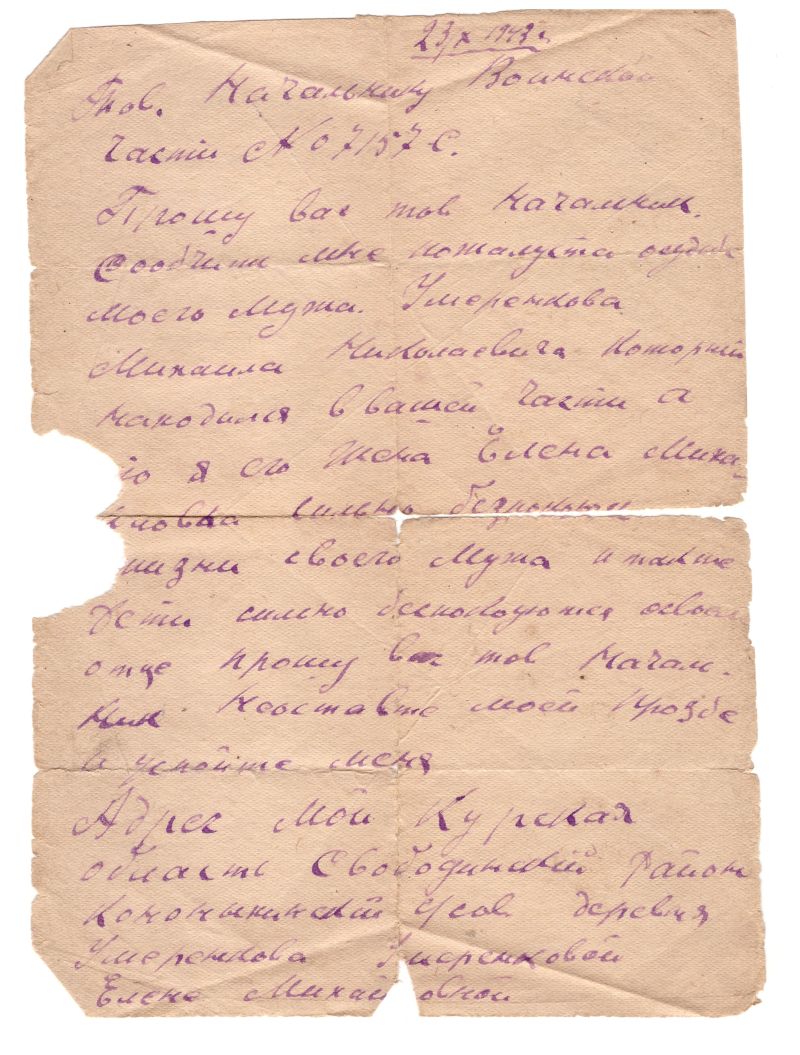 23/X 1943 г.
Тов. Начальнику Воинской
части № 07157 С.
Прошу вас тов Начальник.
Сообчити мне пожалуста осудьбе
моего Мужа. Умеренкова
Михаила Николаевича который
находился в вашей части а
то я его жена Елена Миха-
йловна сильно
жизни своего Мужа и также
Дети сильно беспокоются освоем
отце прошу вас тов Начал-
ник Неоставте моей Прозбе
и успойте меня
Адрес Мой Курская
область Свободинский район
усов деревня
Умеренкова Умеренковой
Елене Михай овной